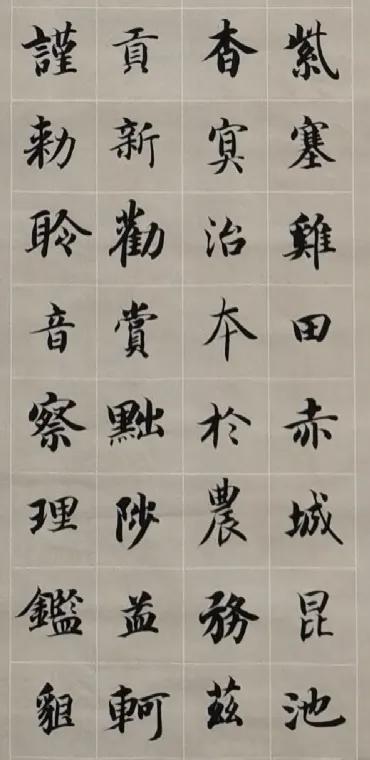 紫塞雞田赤城昆池
杳冥治本於農務茲
貢新勸賞黜陟孟軻
謹勅聆音察理鑑貌